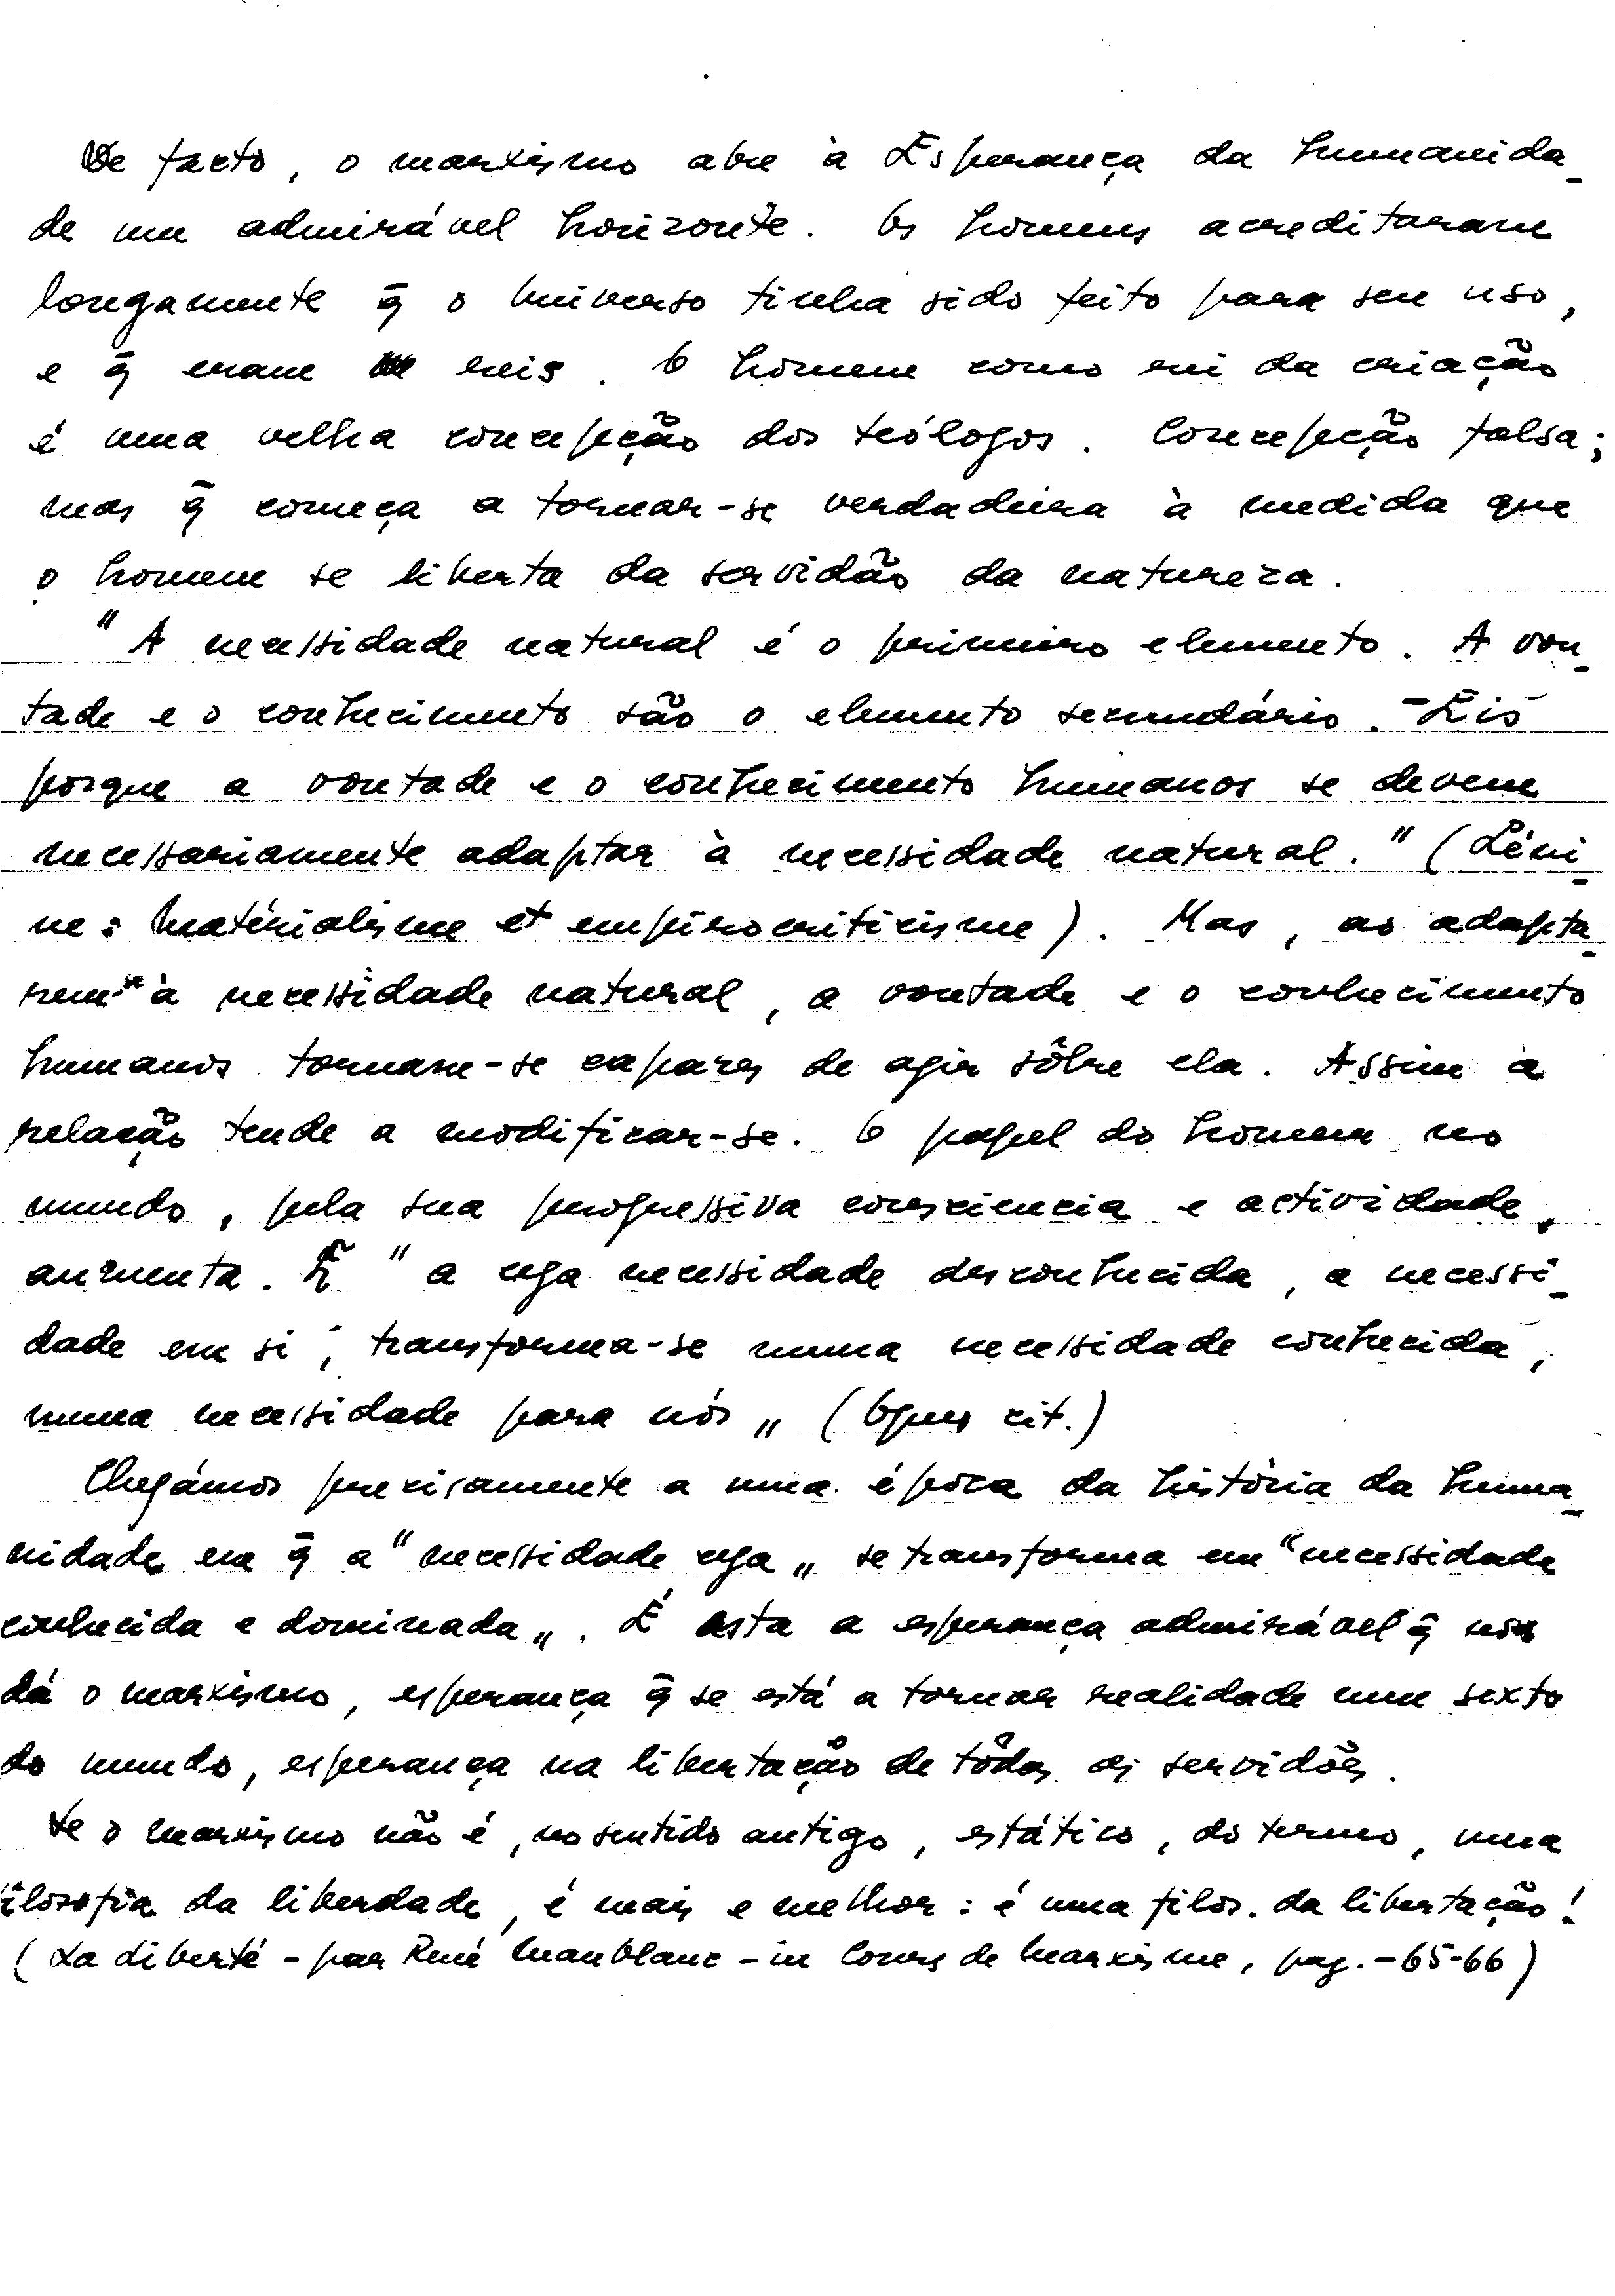 De facto, o marxismo abre à Esperança da humanida-
de um admirável horizonte. Os homens acreditaram
longamente q̄ o Universo tinha sido feito para seu uso,
e q̄ eram reis. O homem como rei da criação
é uma velha concepção dos teólogos. Concepção falsa;
mas q̄ começa a tornar-se verdadeira à medida que
o homem se liberta da servidão da natureza.
"A necessidade natural é o primeiro elemento. A von-
tade e o conhecimento são o elemento secundário. - Eis
porque a vontade e o conhecimento humanos se devem
necessariamente adaptar à necessidade natural." (Léni-
ne: Matérialisme et empirocriticisme). Mas, ao adapta-
rem-se à necessidade natural, a vontade e o conhecimento
humanos tornam-se capazes de agir sôbre ela. Assim a
relação tende a modificar-se. O papel do homem no
mundo, pela sua progressiva consciencia e actividade,
aumenta. E "a cega necessidade desconhecida, a necessi-
dade em si", transforma-se numa necessidade conhecida,
numa necessidade para nós" (Opus cit.)
Chegámos precisamente a uma época da história da huma-
nidade em q̄ a "necessidade cega" se transforma em "necessidade
conhecida e dominada". É esta a esperança admirável q̄ nos
dá o marxismo, esperança q̄ se está a tornar realidade num sexto
do mundo, esperança na libertação de tôdas as servidões.
Se o marxismo não é, no sentido antigo, estático, do termo, uma
filosofia da liberdade, é mais e melhor: é uma filos. da libertação!
(La Liberté - par René Maublanc - in Cours de Marxisme, pag. - 65-66)